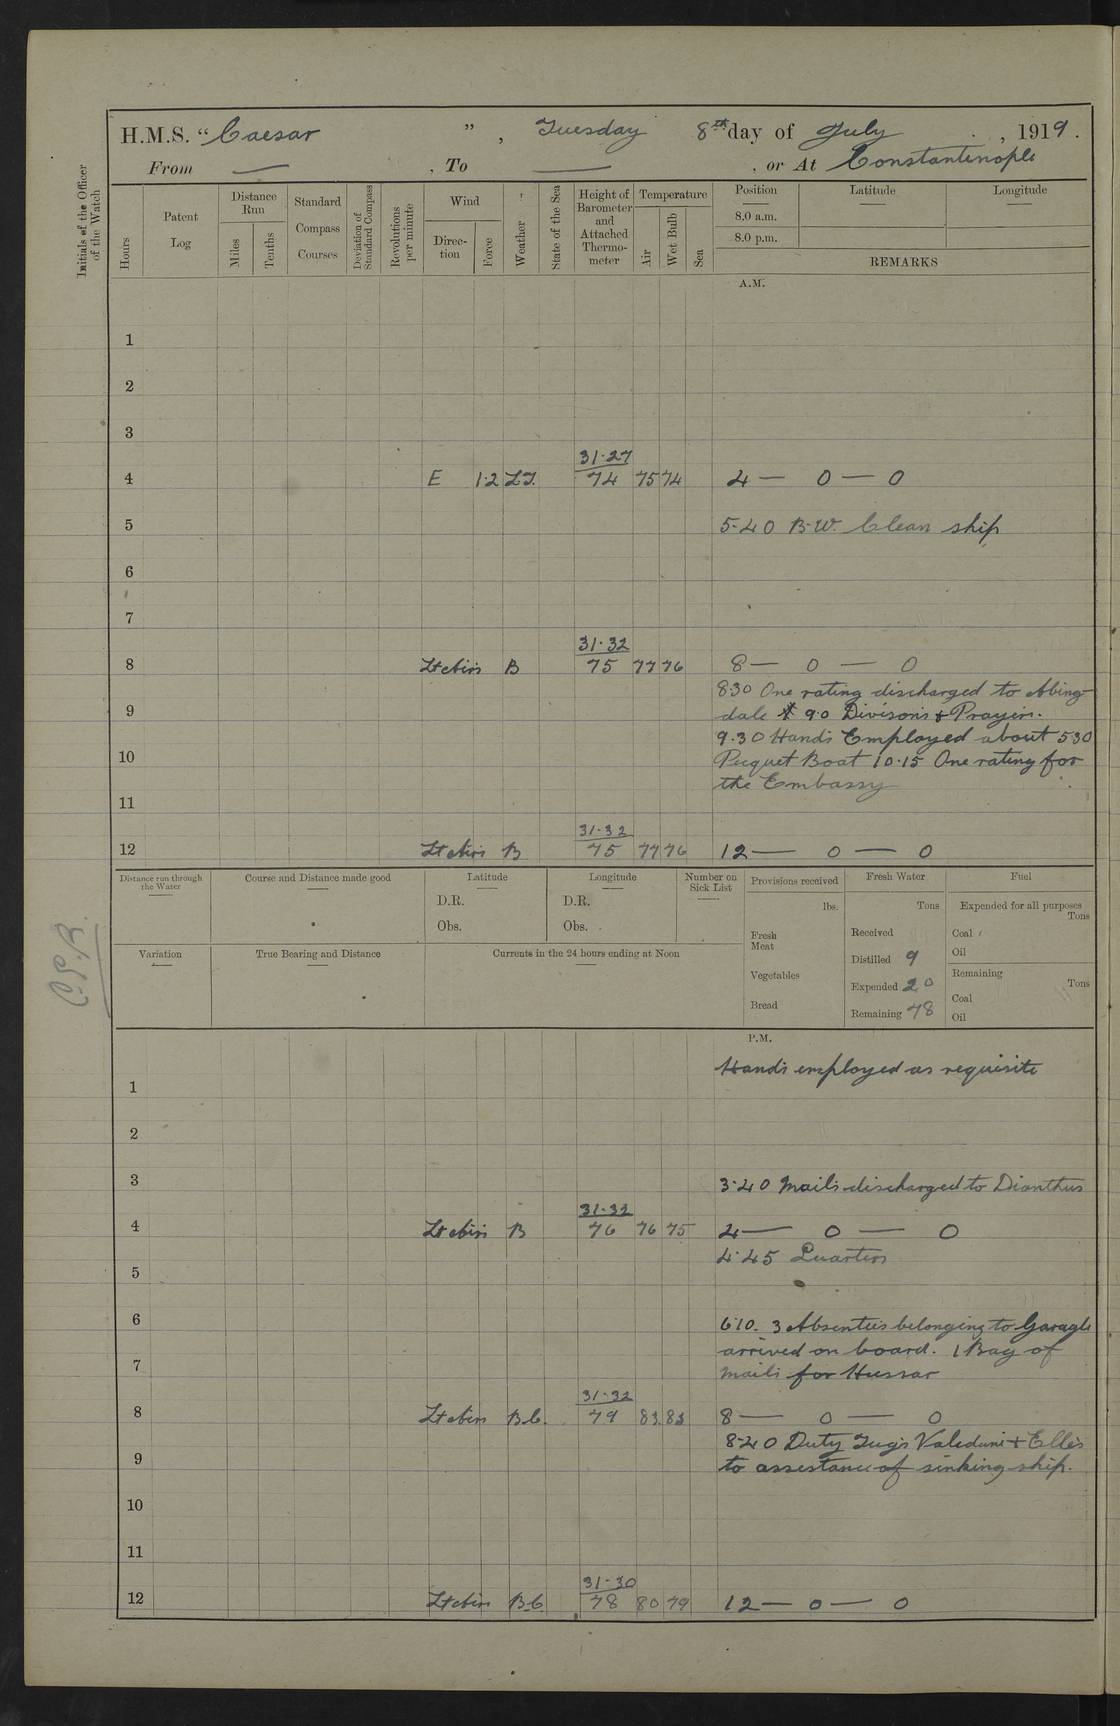 H.M.S. "Caesar", Tuesday 8th day of July, 1919.
From — , To — , or At Constantinople
Initials of the Officer of the Watch
Hours
Patent Log
Distance Run
Miles
Tenths
Standard Compass Courses
Deviation of Standard Compass
Revolutions per minute
Wind
Direction
Force
Weather
State of the Sea
Height of Barometer and Attached Thermometer
Temperature
Air
Wet Bulb
Sea
Position
Latitude
Longitude
8.0 a.m.
8.0 p.m.
REMARKS
A.M.
1
2
3
31·27
4 E 1·2 74 75 74 4 — 0 — 0
5 5·40 B.W. Clean ship
6
7
31·32
8 Lt airs B 75 77 76 8 — 0 — 0
8 30 One rating discharged to Abing-
9 dale 9·0 Divisons + Prayers.
9·30 Hands Employed about 530
10 Picquet Boat 10·15 One rating for
the Embassy
11
31·32
12 Lt airs B 75 77 76 12 — 0 — 0
Distance run through the Water
Course and Distance made good
Latitude
D.R.
Obs.
Longitude
D.R.
Obs.
Number on Sick List
Provisions received
lbs.
Fresh Meat
Vegetables
Bread
Fresh Water
Tons
Received
Distilled 9
Expended 20
Remaining 78
Fuel
Expended for all purposes
Tons
Coal
Oil
Remaining
Tons
Coal
Oil
Variation
True Bearing and Distance
Currents in the 24 hours ending at Noon
P.M.
Hands employed as requisite
1
2
3 3·40 Mails discharged to Dianthus
31·32
4 Lt airs B 76 76 75 4 — 0 — 0
4·45 Quarters
5
6 6 10. 3 Absentees belonging to
arrived on board. 1 Bag of
7 mails for Hussar
31·32
8 Lt airs B.C. 79 83 83 8 — 0 — 0
8·40 Duty Tugs + Ellis
9 to assestance of sinking ship.
10
11
31·30
12 Lt airs B.C. 78 80 79 12 — 0 — 0